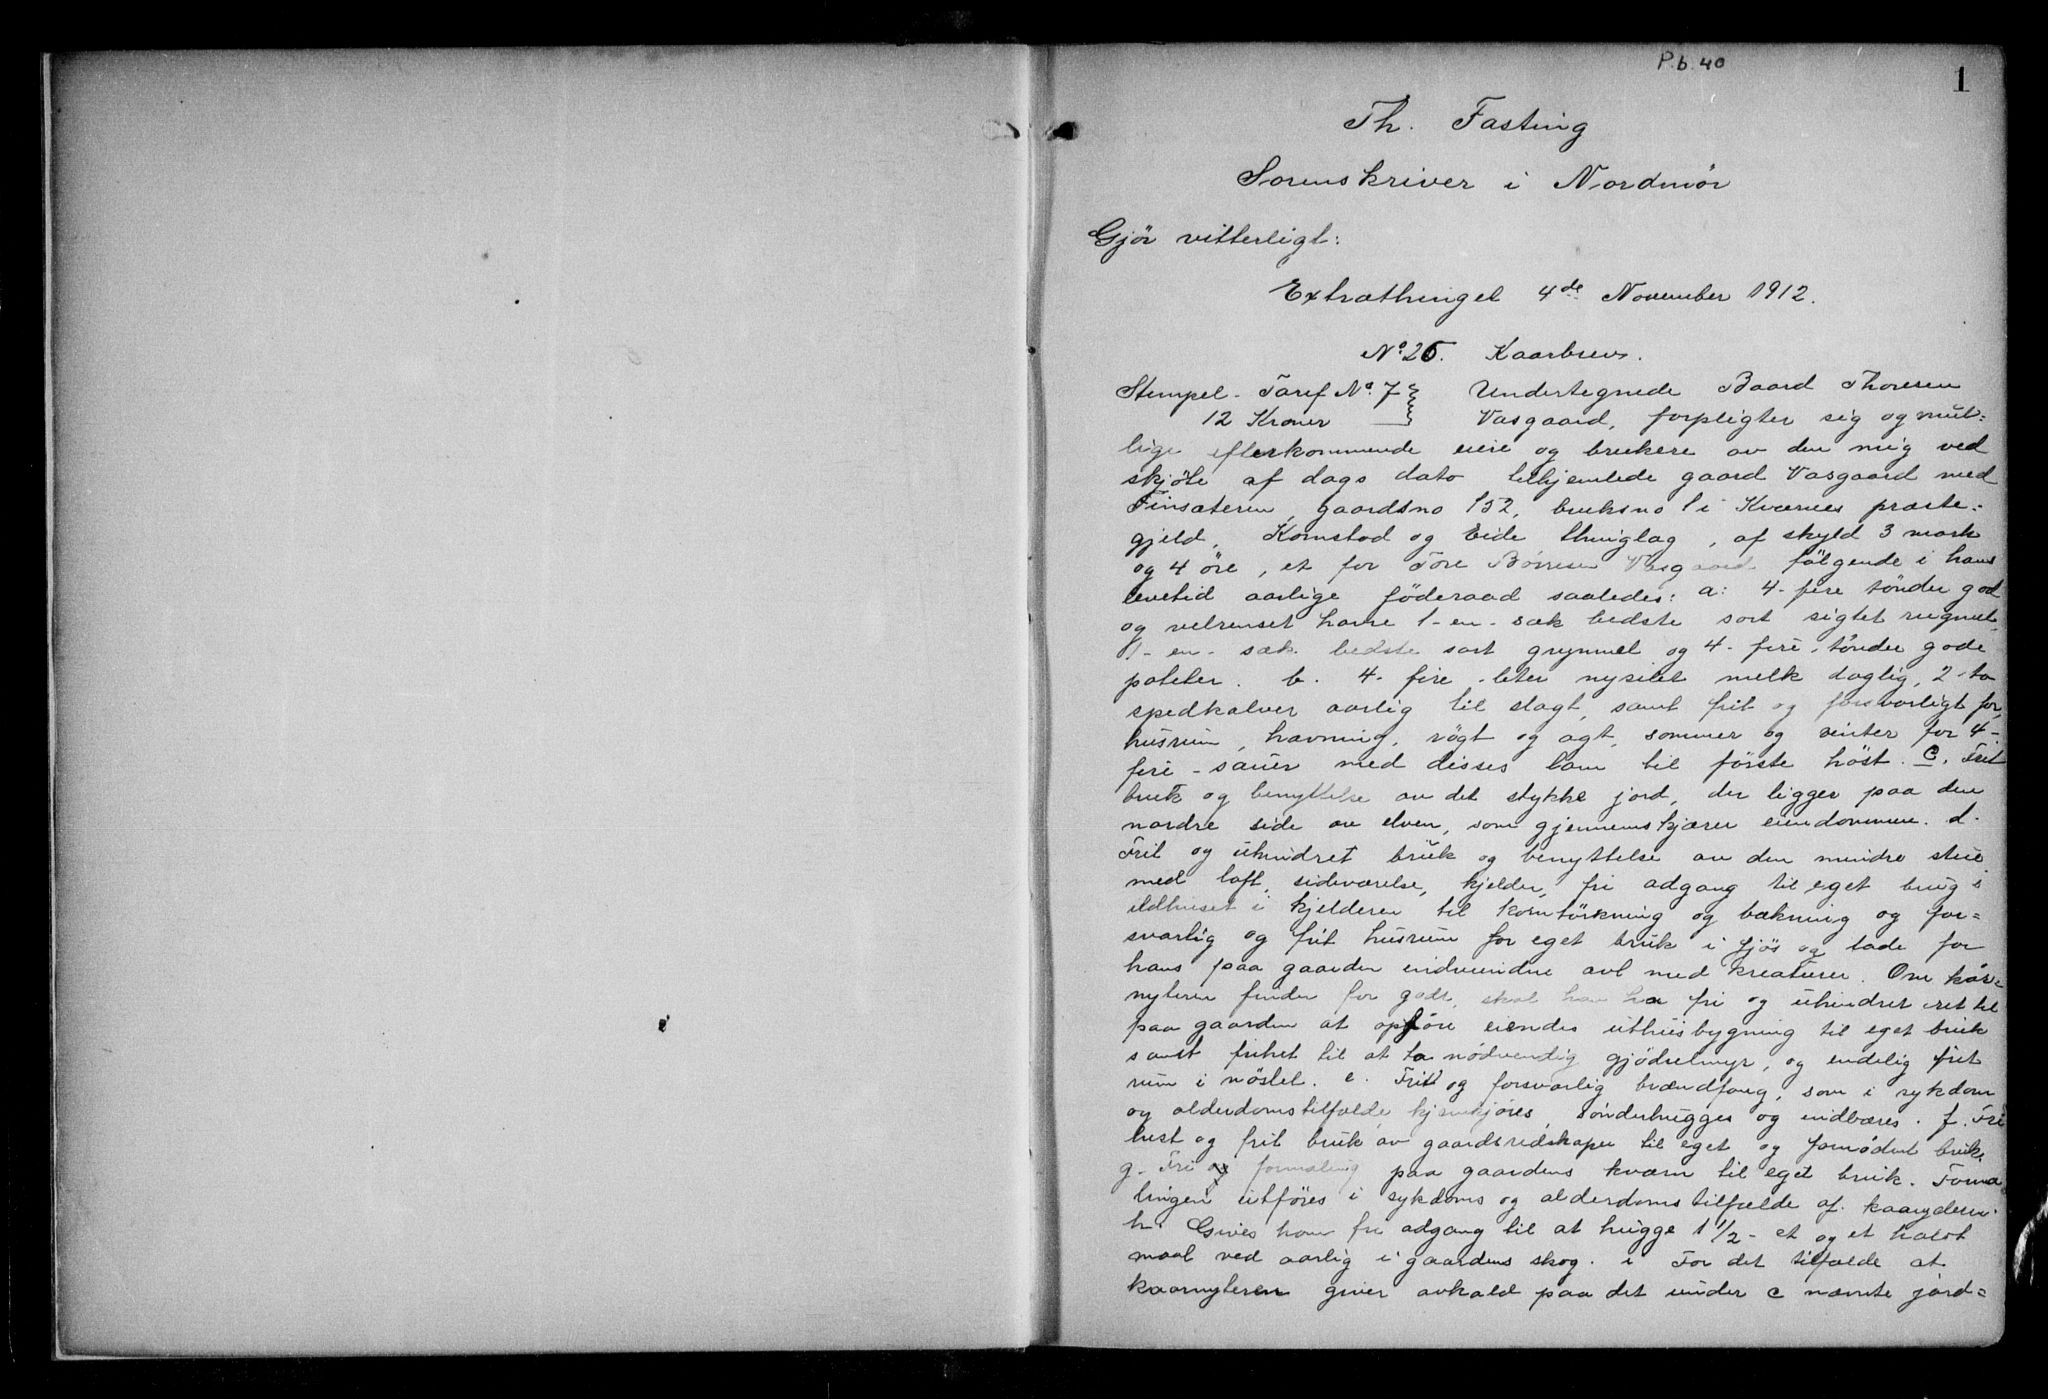 P.b. 40
1
Th. Fasting
Sorenskriver i Nordmør
Gjør vitterligt:
Extrathinget 4de November 1912.
No. 26. Kaarbrev.
Stempel-Tarif No. 7 Undertegnede Baard Thoresen
12 Kroner Vasgaard, forpligter sig og mut-
lige efterkommende eiere og brukere av den mig ved
skjøte af dags dato tilhjemlede gaard Vasgaard med
Finsæteren, gaardsno 152, bruksno 1 i Kvernes præste-
gjeld, Kornstad og Eide thinglag, af skyld 3 mark
og 4 øre, et for Tore Børresen Vasgaard følgende i hans
levetid aarlige føderaad saaledes: a: 4-fire tønder god
og velrenset havre 1-en-sæk bedste sort sigtet rugmel,
1-en-sæk bedste sort grynmel og 4-fire tønder gode
poteter. b. 4-fire-liter nysilet melk daglig, 2-to
spedkalver aarlig til slagt, samt frit og forsvarligt for,
husrum, havning, røgt og agt, sommer og vinter for 4-
fire-sauer med disses lam til første høst. c. Frit
bruk og benyttelse av det stykke jord, der ligger paa den
nordre side av elven, som gjennemskjærer eiendommen. d.
Frit og uhindret bruk og benyttelse av den mindre stue
med loft, sideværelse, kjelder, fri adgang til eget brug i
ildhuset i kjelderen til korntørkning og bakning og for-
svarlig og frit husrum for eget bruk i fjøs og lade for
hans paa gaarden indvundne avl med kreaturer. Om kår-
nyteren finder for godt, skal han ha fri og uhindret ret til
paa gaarden at opføre eiendes uthusbygning til eget bruk
samt frihet til at ta nødvendig gjødselmyr, og endelig frit
rum i nøstet. e. Frit og forsvarlig brændfang, som i sykdom
og alderdomstilfælde hjemkjøres, sønderhugges og indbæres. f. Fri
hest og frit bruk av gaardsredskaper til eget og fornødent bruk.
g. Fri formaling paa gaardens kværn til eget bruk. Forma
lingen utføres i sykdoms og alderdomstilfælde af kaaryderen.
h. Gives ham fri adgang til at hugge 1 1/2 - et og et halvt
maal ved aarlig i gaardens skog. i For det tilfælde at
kaarnyteren giver avkald paa det under c nævnte jord-